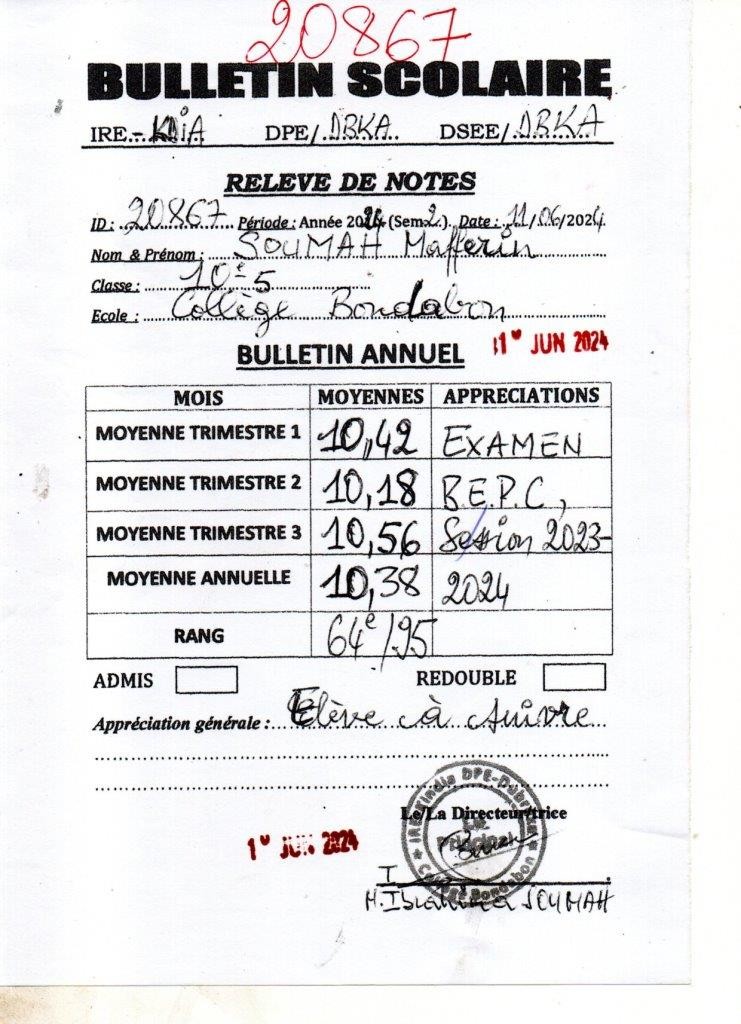 20867
BULLETIN SCOLAIRE
IRE.-KDiA DPE/.DBKA.. DSEE/.DBKA
RELEVE DE NOTES
ID : 20867 Période : Année 2024 (Sem 2.). Date : 11/06/2024
Nom & Prénom : SOUMAH Mafferin
Classe : 10e 5
Ecole : Collège Bondabon
BULLETIN ANNUEL JUN 2024
MOIS MOYENNES APPRECIATIONS
MOYENNE TRIMESTRE 1 10,42 EXAMEN
MOYENNE TRIMESTRE 2 10,18 B.E.P.C,
MOYENNE TRIMESTRE 3 10,56 Session 2023-
MOYENNE ANNUELLE 10,38 2024
RANG 64e/95
ADMIS REDOUBLE
Appréciation générale : Elève à suivre
Le/La Directeur/trice
IRE-Kindia DPE-Dubréka
Le Principal
Collège Bondabon
JUN 2024
M. Ibrahima SOUMAH